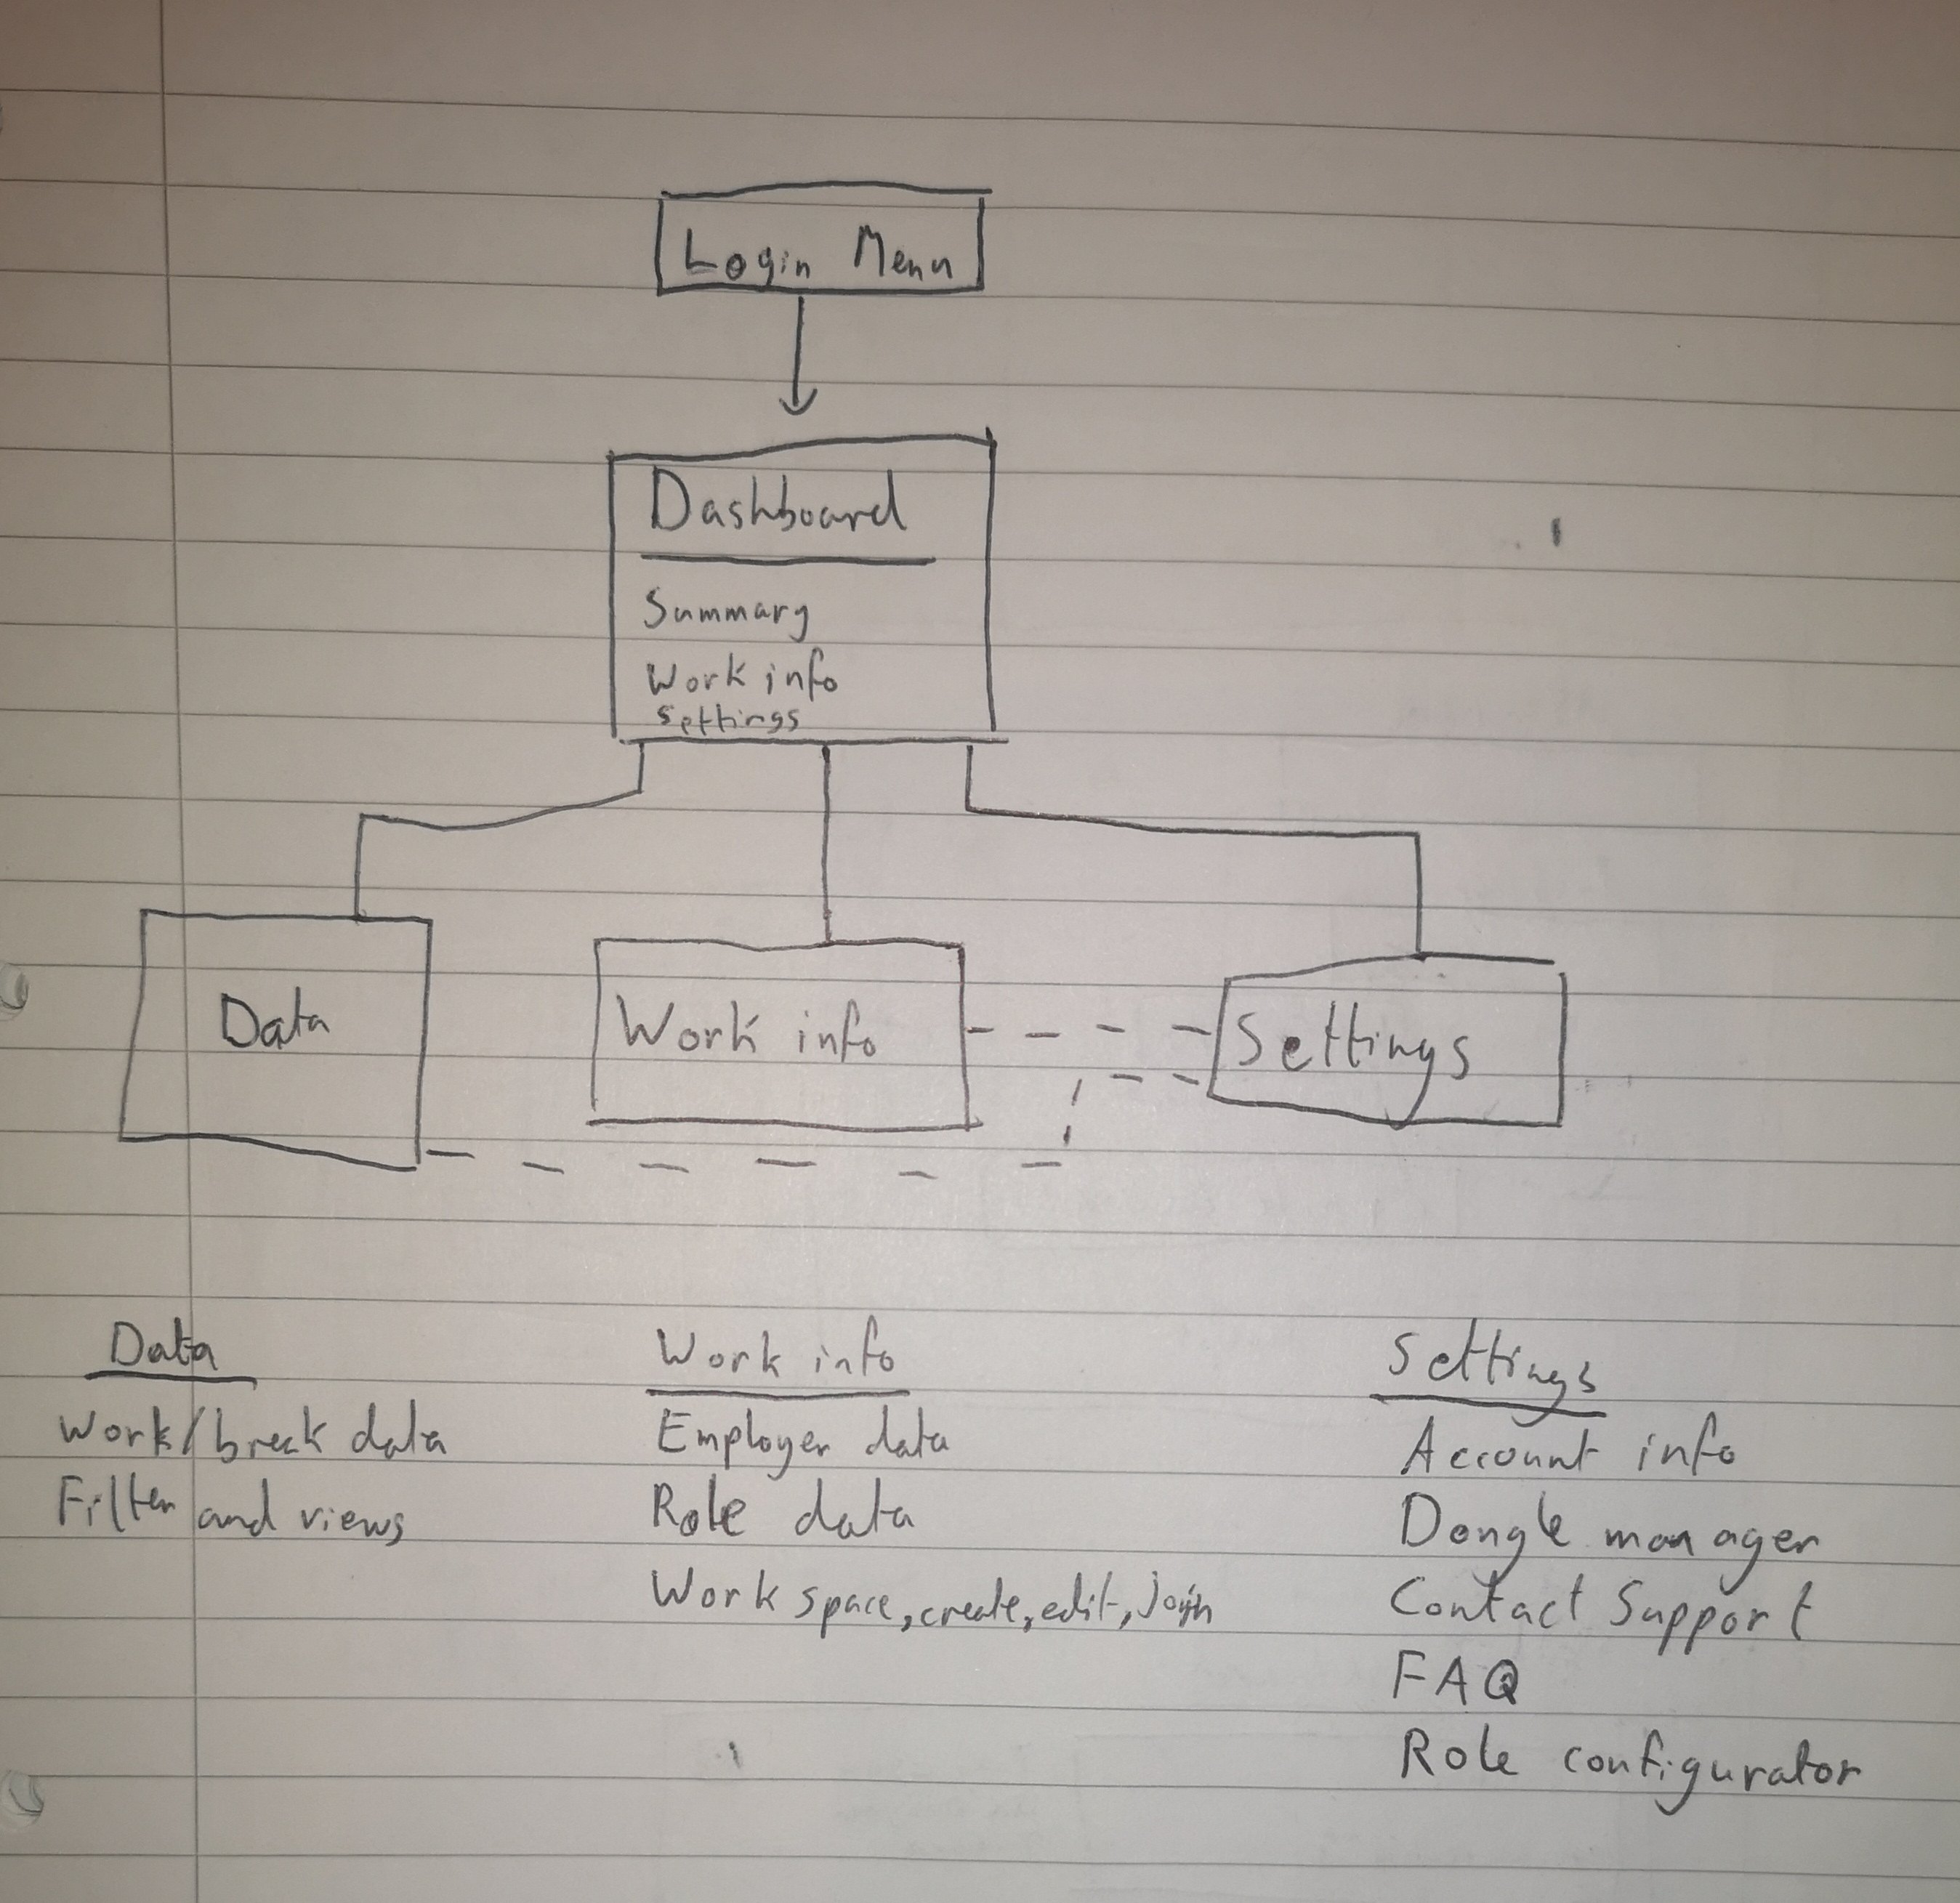 Login Menu
Dashboard
Summary
Work info
Settings
Data
Work info
Settings
Data
Work/break data
Filter and views
Work info
Employer data
Role data
Work space, create, edit, join
Settings
Account info
Dongle manager
Contact Support
FAQ
Role configurator